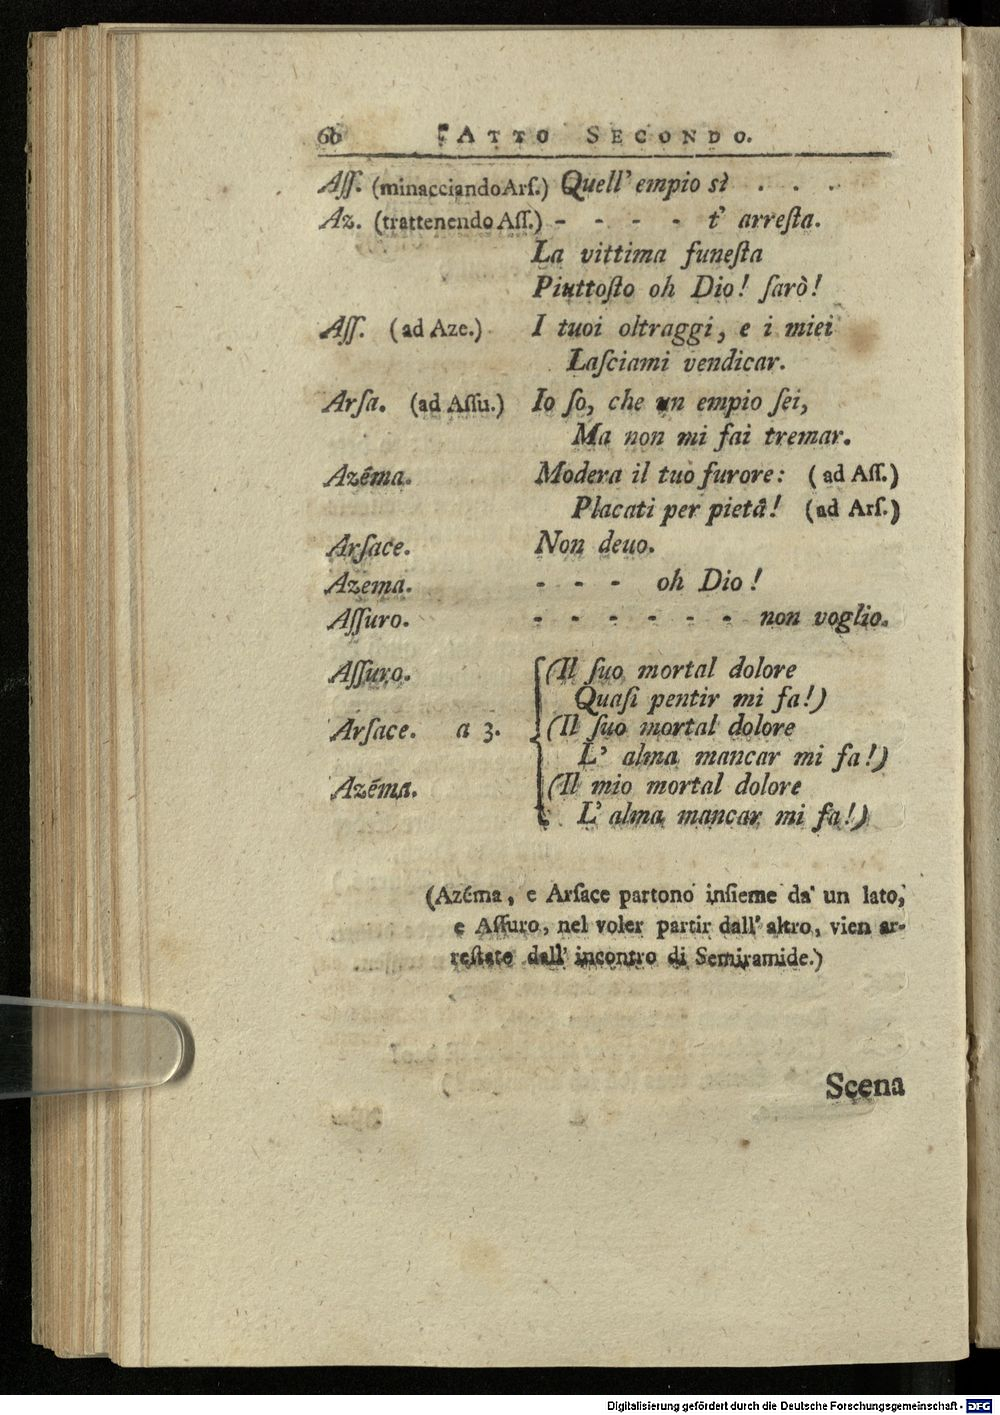 60 ATTO SECONDO.
Aſſ. (minacciando Arſ.) Quell' empio sì . . .
Az. (trattenendo Aſſ.) - - - - t' arreſta.
La vittima funeſta
Piuttoſto oh Dio! ſarò!
Aſſ. (ad Aze.) I tuoi oltraggi, e i miei
Laſciami vendicar.
Arſa. (ad Aſſu.) Io ſo, che un empio ſei,
Ma non mi fai tremar.
Azêma. Modera il tuo furore: (ad Aſſ.)
Placati per pietâ! (ad Arſ.)
Arſace. Non deuo.
Azema. - - - oh Dio!
Aſſuro. - - - - - - non voglio.
Aſſuro. (Il ſuo mortal dolore
Quaſi pentir mi fa!)
Arſace. a 3. (Il ſuo mortal dolore
L' alma mancar mi fa!)
Azéma. (Il mio mortal dolore
L' alma mancar mi fa!)
(Azéma, e Arſace partono inſieme da' un lato,
e Aſſuro, nel voler partir dall' altro, vien ar-
reſtato dall' incontro di Semiramide.)
Scena
Digitalisierung gefördert durch die Deutsche Forschungsgemeinschaft - DFG